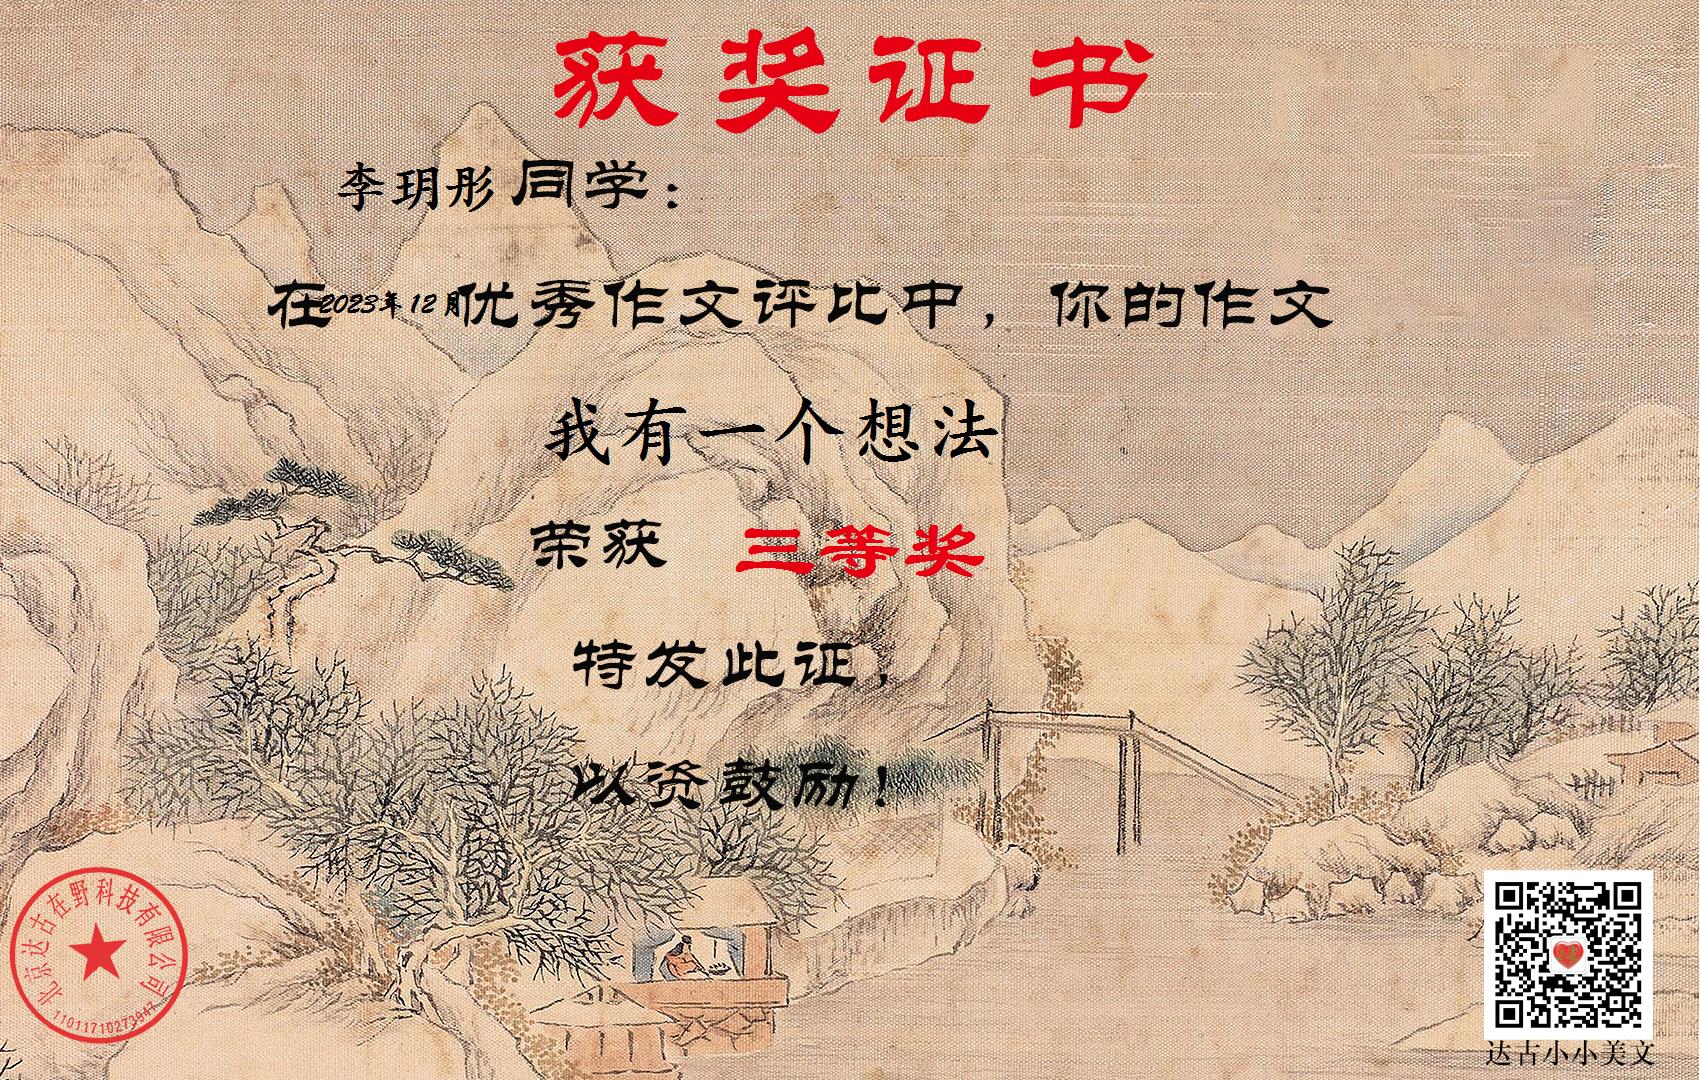 获奖证书
李玥彤 同学：
在2023年12月优秀作文评比中，你的作文
我有一个想法
荣获 三等奖
特发此证，
以资鼓励！
北京达古在野科技有限公司
11011710273947
达古小小美文